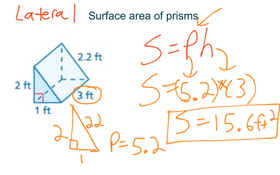 Lateral Surface area of prisms
S = Ph
2.2 ft
2 ft
3 ft
1 ft
S = (5.2)*(3)
S = 15.6 ft²
2
2.2
1
P = 5.2